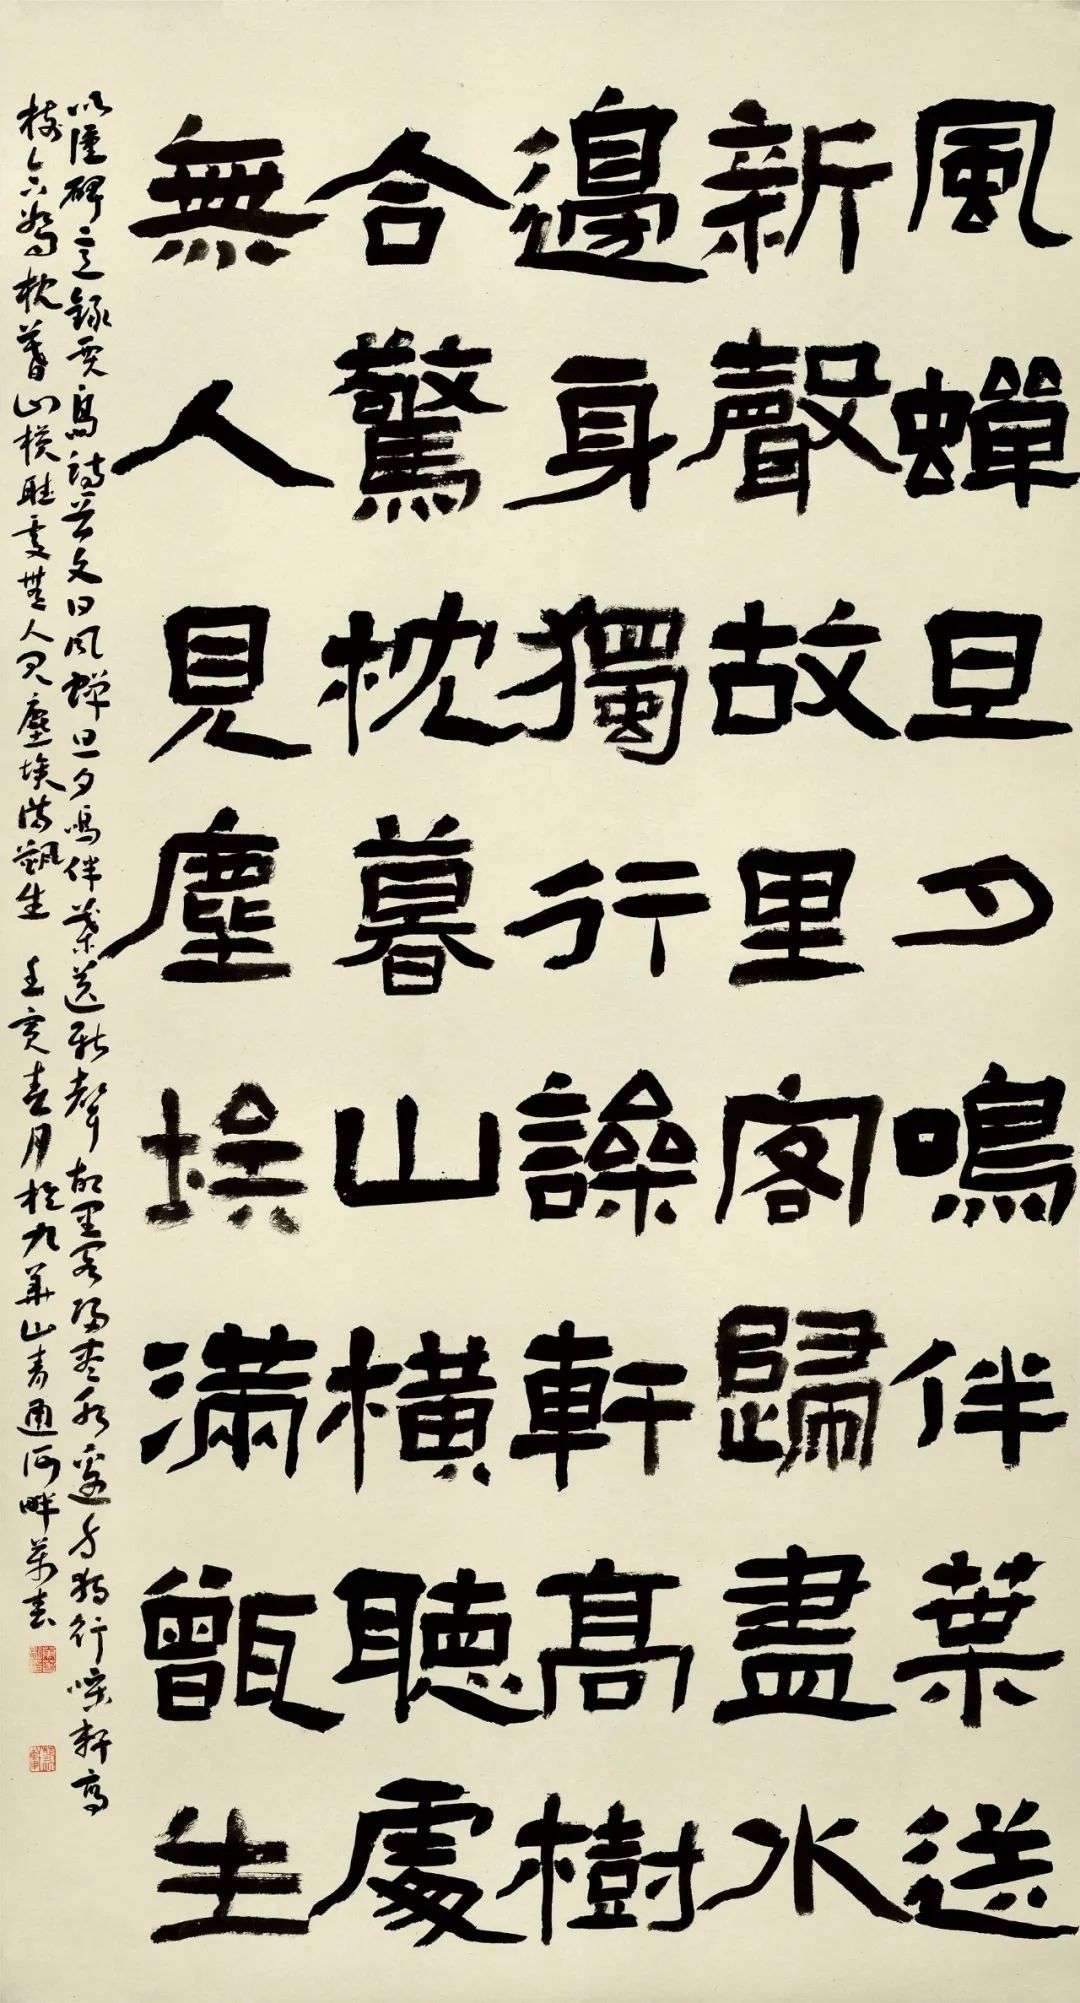 風蟬旦夕鳴伴葉送
新聲故里客歸盡水
邊身獨行譟軒髙樹
合驚枕暮山橫聽處
無人見塵埃滿甑生
以漢碑意錄賈島詩文曰風蟬旦夕鳴伴葉送新聲故里客歸盡水邊身獨行噪軒高
樹合驚枕暮山橫聽處無人見塵埃滿甑生 壬寅春月於九華山青通河畔